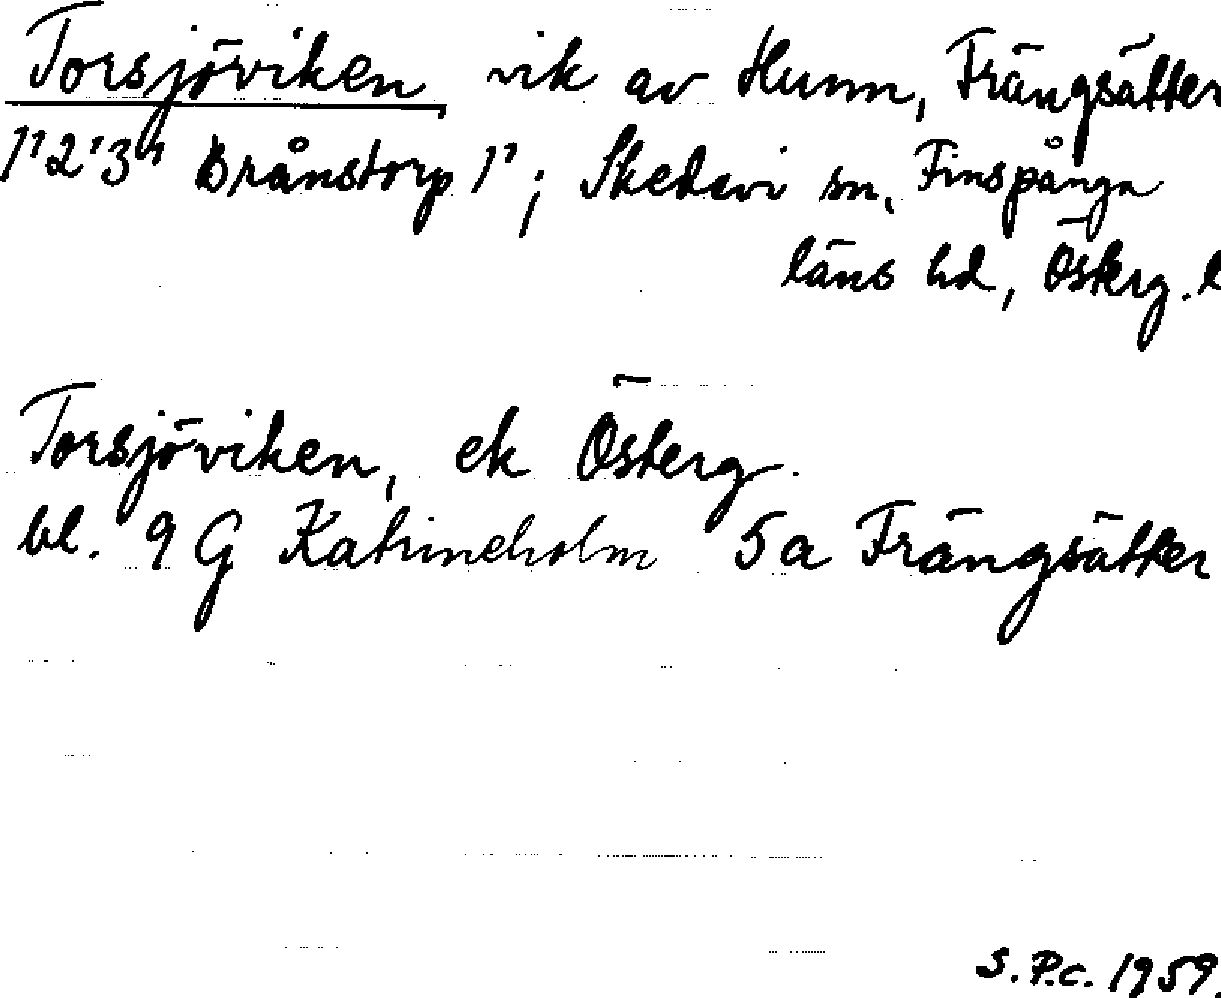 Torsjöviken, vik av Hunn, Frängsätter
1¹2¹3⁴ Brånstorp 1¹; Skedevi sn, Finspånga
läns hd, Österg. l
Torsjöviken, ek Österg.
bl. 9 G Katrineholm 5 a Frängsätter
S.P.C. 1959.